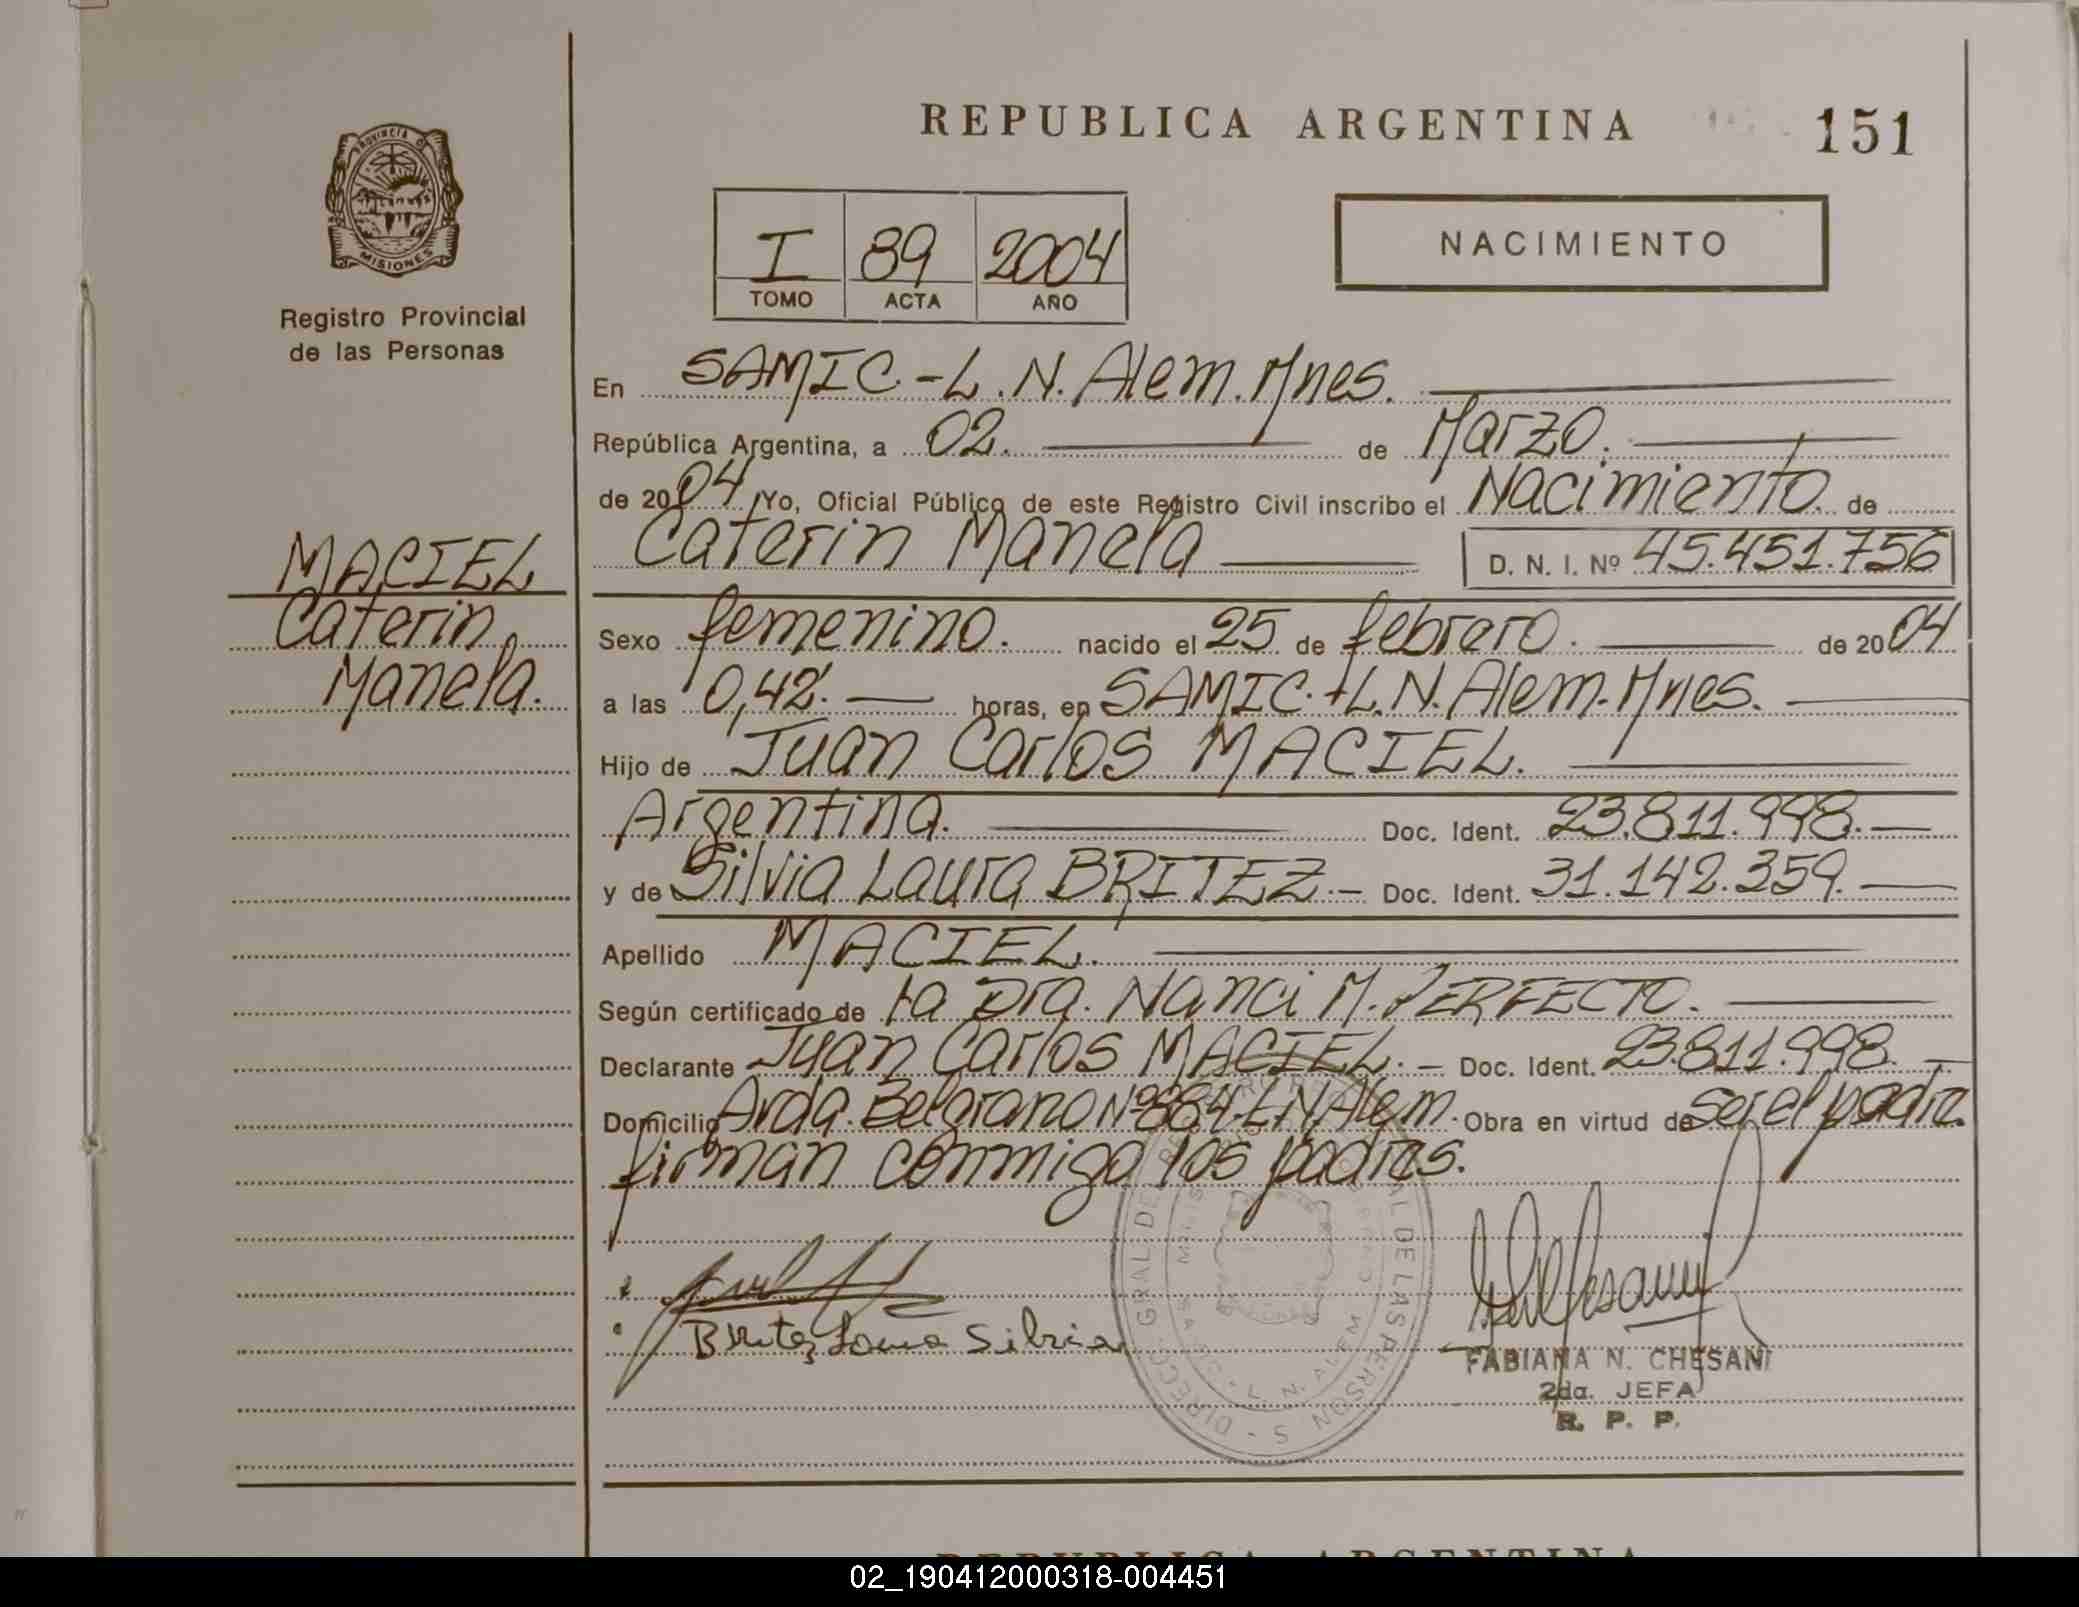 REPUBLICA ARGENTINA
151
PROVINCIA DE
MISIONES
Registro Provincial
de las Personas
I 89 2004
TOMO ACTA AÑO
NACIMIENTO
En SAMIC.-L.N. Alem. Mnes.
República Argentina, a 02. de Marzo.
de 2004, Yo, Oficial Público de este Registro Civil inscribo el Nacimiento. de
Caterin Manela D. N. I. Nº 45.451.756
MACIEL
Caterin
Manela.
Sexo femenino. nacido el 25 de febrero. de 2004
a las 0,42. horas, en SAMIC.-L.N. Alem-Mnes.
Hijo de Juan Carlos MACIEL.
Argentina. Doc. Ident. 23.811.998.-
y de Silvia Laura BRITEZ.- Doc. Ident. 31.142.359.
Apellido MACIEL.
Según certificado de la Dra. Nanci M. PERFECTO.
Declarante Juan Carlos MACIEL.- Doc. Ident. 23.811.998.
Domicilio Avda. Belgrano Nº 884-LN Alem. Obra en virtud de ser el padre.
firman conmigo los padres.
Britez Laura Silvia
DIRECC. GRAL. DEL REGISTRO PROVINCIAL DE LAS PERSONAS
L. N. ALEM
FABIANA N. CHESANI
2da. JEFA
R. P. P.
REPUBLICA ARGENTINA
02_190412000318-004451